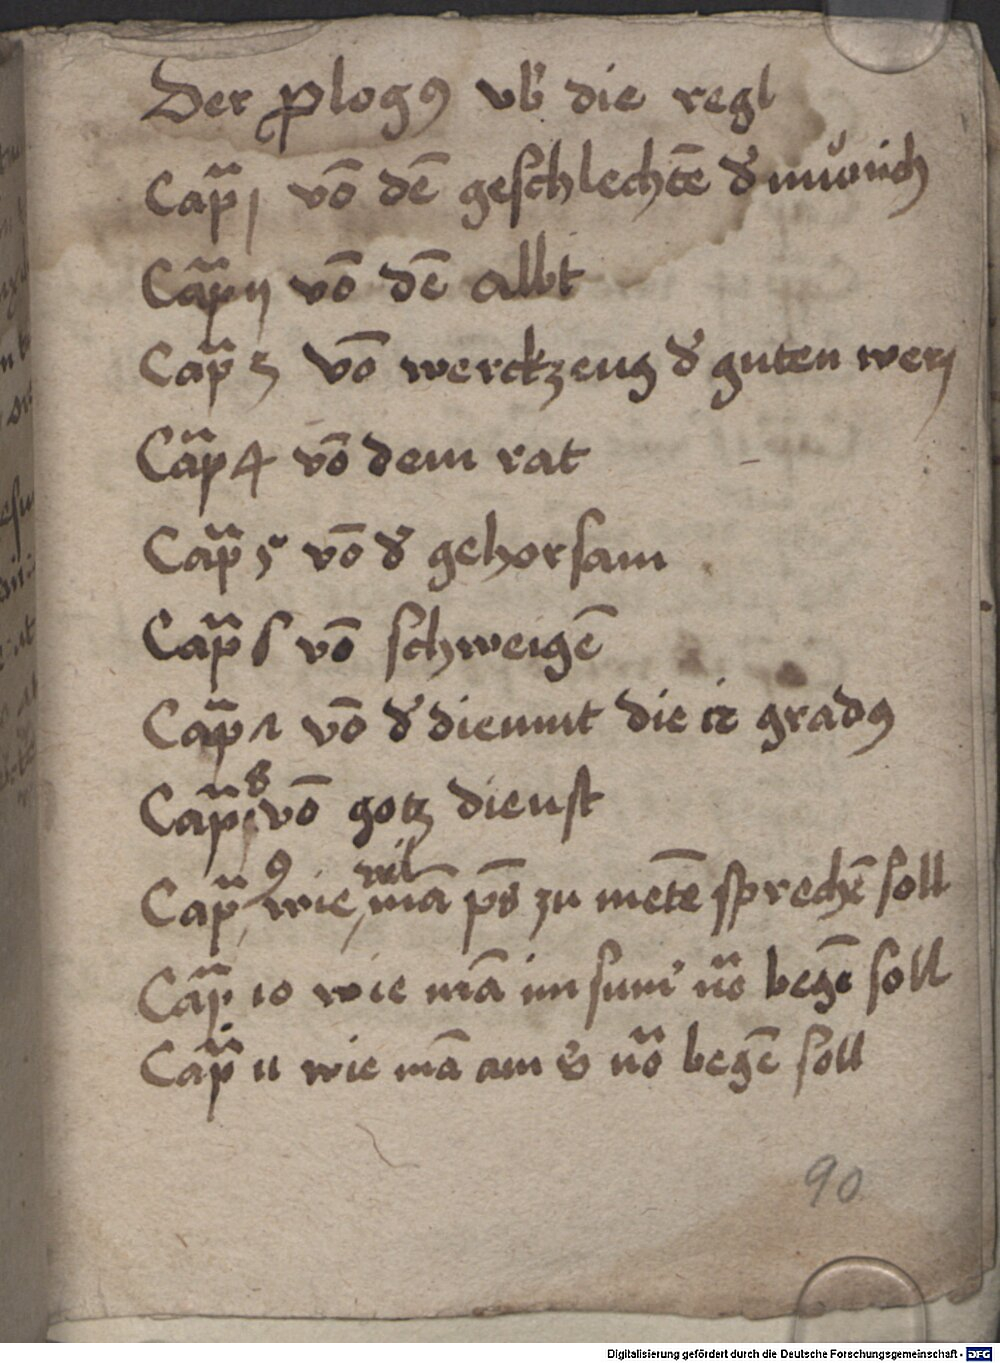 Der ꝓlogꝰ vb̕ die regl
Cap̃ j võ dẽ geschlechtẽ d̕ můnich
Cap̃ ij võ dẽ abbt
Cap̃ 3 võ werckzeug d̕ guten werꝫ
Cap̃ 4 võ dem rat
Cap̃ 5 võ d̕ gehorsam
Cap̃ 6 võ schweigẽ
Cap̃ 7 võ d̕ diemut die 12 gradꝰ
Cap̃ 8 võ gotz dienst
Cap̃ 9 wie vil mã p̃s zu metẽ sprechẽ soll
Cap̃ 10 wie mã im sum̕ nãs begẽ soll
Cap̃ 11 wie mã am nãs begẽ soll
90
Digitalisierung gefördert durch die Deutsche Forschungsgemeinschaft - DFG